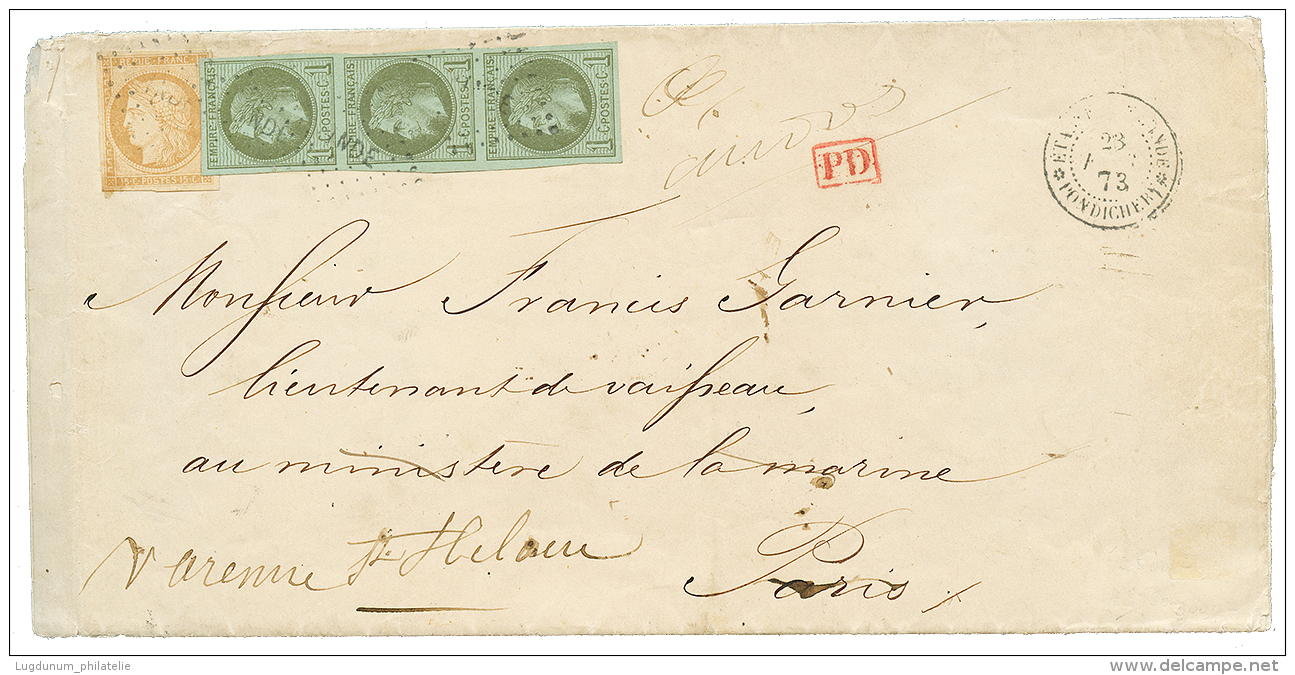 REPUB. FRANC.
15 C. POSTES 15 C.
EMPIRE FRANÇAIS
1 C. POSTES C. 1
EMPIRE FRANÇAIS
1 C. POSTES C. 1
EMPIRE FRANÇAIS
1 C. POSTES C. 1
INDE
PD
INDE
23
73
PONDICHERY
Monsieur Francis Garnier,
lieutenant de vaisseau,
au ministère de la marine
Paris
Varenne St Hilaire
Lugdunum_philatelie
www.delcampe.net